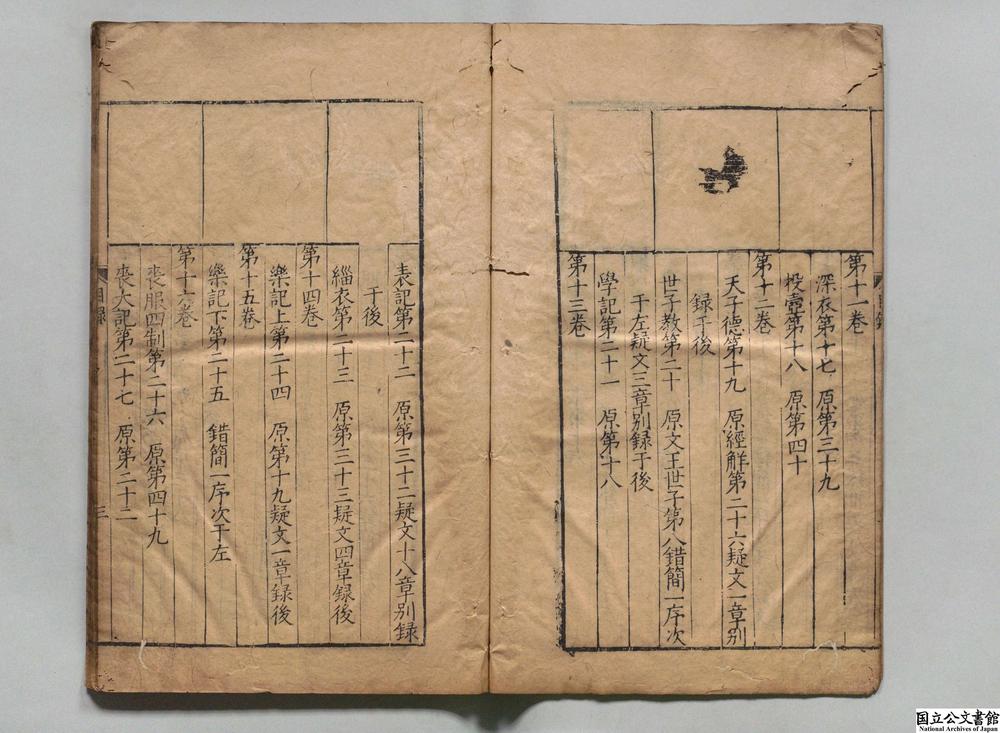 第十一卷
深衣第十七　原第三十九
投壺第十八　原第四十
第十二卷
天子德第十九　原經解第二十六疑文一章别
録于後
世子教第二十　原文王世子第八錯簡一序次
于左疑文三章别録于後
學記第二十一　原第十八
第十三卷
表記第二十二　原第三十二疑文十八章别録
于後
緇衣第二十三　原第三十三疑文四章録後
第十四卷
樂記上第二十四　原第十九疑文一章録後
第十五卷
樂記下第二十五　錯簡一序次于左
第十六卷
喪服四制第二十六　原第四十九
喪大記第二十七　原第二十二
目録
三
国立公文書館
National Archives of Japan